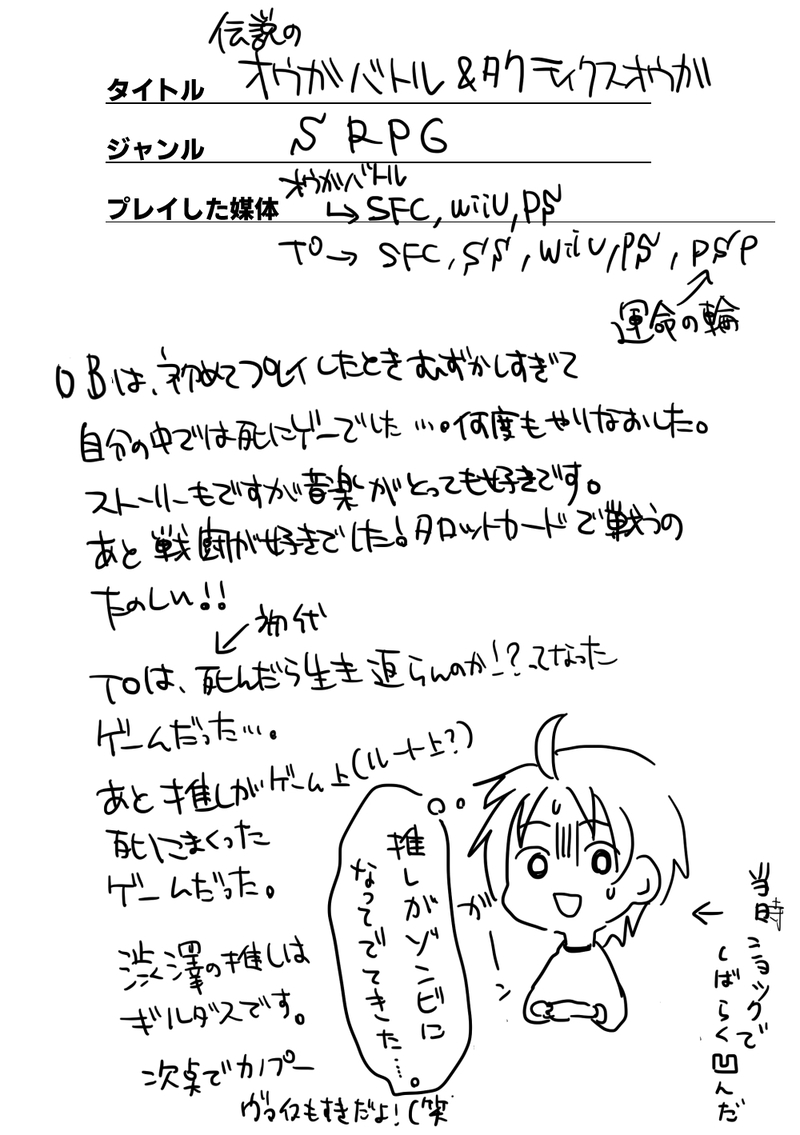 伝説の
タイトル オウガバトル&タクティクスオウガ
ジャンル SRPG
オウガバトル
プレイした媒体 →SFC,wiiU,PS
TO→ SFC,SS,WiiU,PS,PSP
運命の輪
OBは、初めてプレイしたときむずかしすぎて
自分の中では死にゲーでした…。何度もやりなおした。
ストーリーもですが音楽がとっても好きです。
あと戦闘が好きでした!タロットカードで戦うの
たのしい!!
初代
TOは、死んだら生き返らんのか!?ってなった
ゲームだった…。
あと推しがゲーム上(ルート上?)
死にまくった
ゲームだった。
推しがゾンビに
なってでてきた…。
がーン
当時
ショックで
しばらく凹んだ
渋澤の推しは
ギルダスです。
次点でカノプー
ヴァイスもすきだよ!(笑